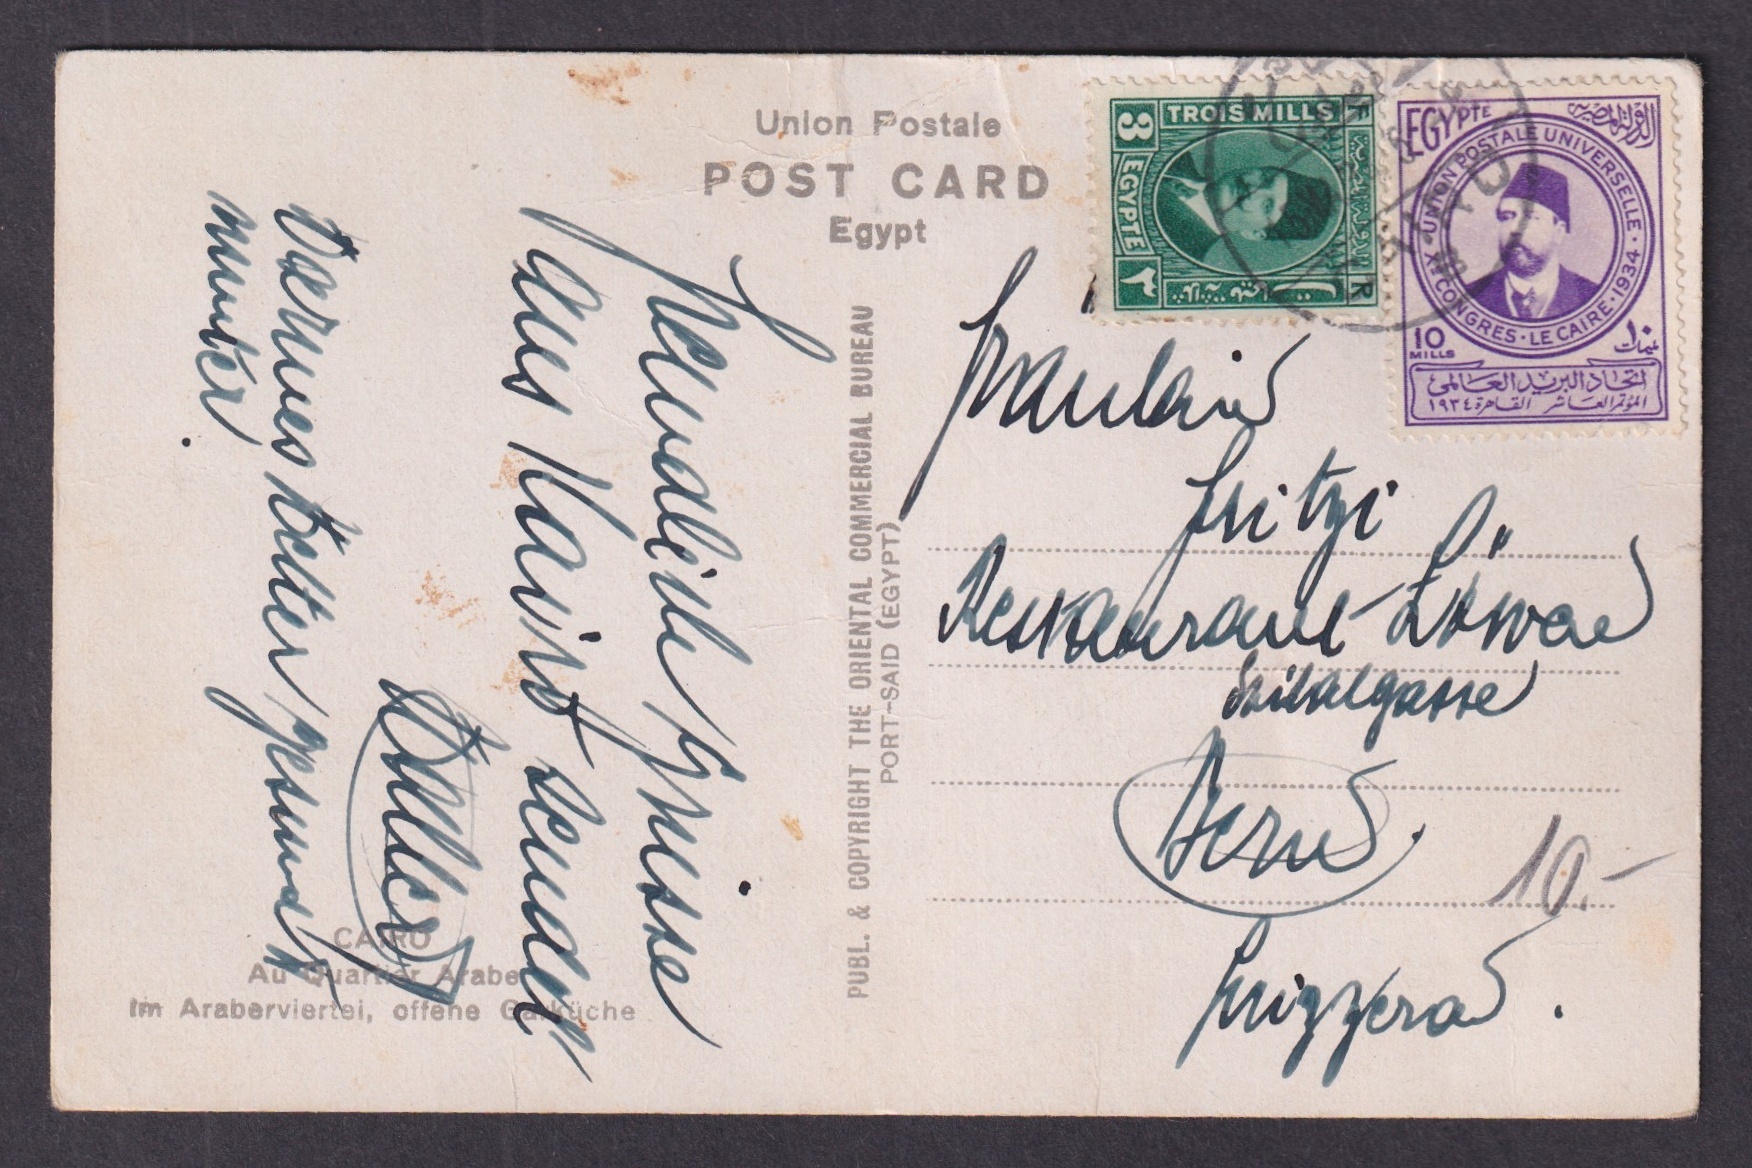 Union Postale
POST CARD
Egypt
TROIS MILLS
3
EGYPTE
٣
F
R
EGYPTE
الدولة المصرية
UNION POSTALE UNIVERSELLE
XME CONGRES · LE CAIRE · 1934
10
MILLS
١٠
مليمات
اتحاد البريد العالمى
المؤتمر العاشر القاهرة ١٩٣٤
Freundliche Grüsse
aus Kairo sendet
Haller
Bernes Retter gesund &
munter.
PUBL. & COPYRIGHT THE ORIENTAL COMMERCIAL BUREAU
PORT-SAID (EGYPT)
Fräulein
Fritzi
Restaurant Löwen
Spitalgasse
Bern.
Svizzera.
10.-
CAIRO
Au Quartier Arabe
Im Araberviertel, offene Garküche